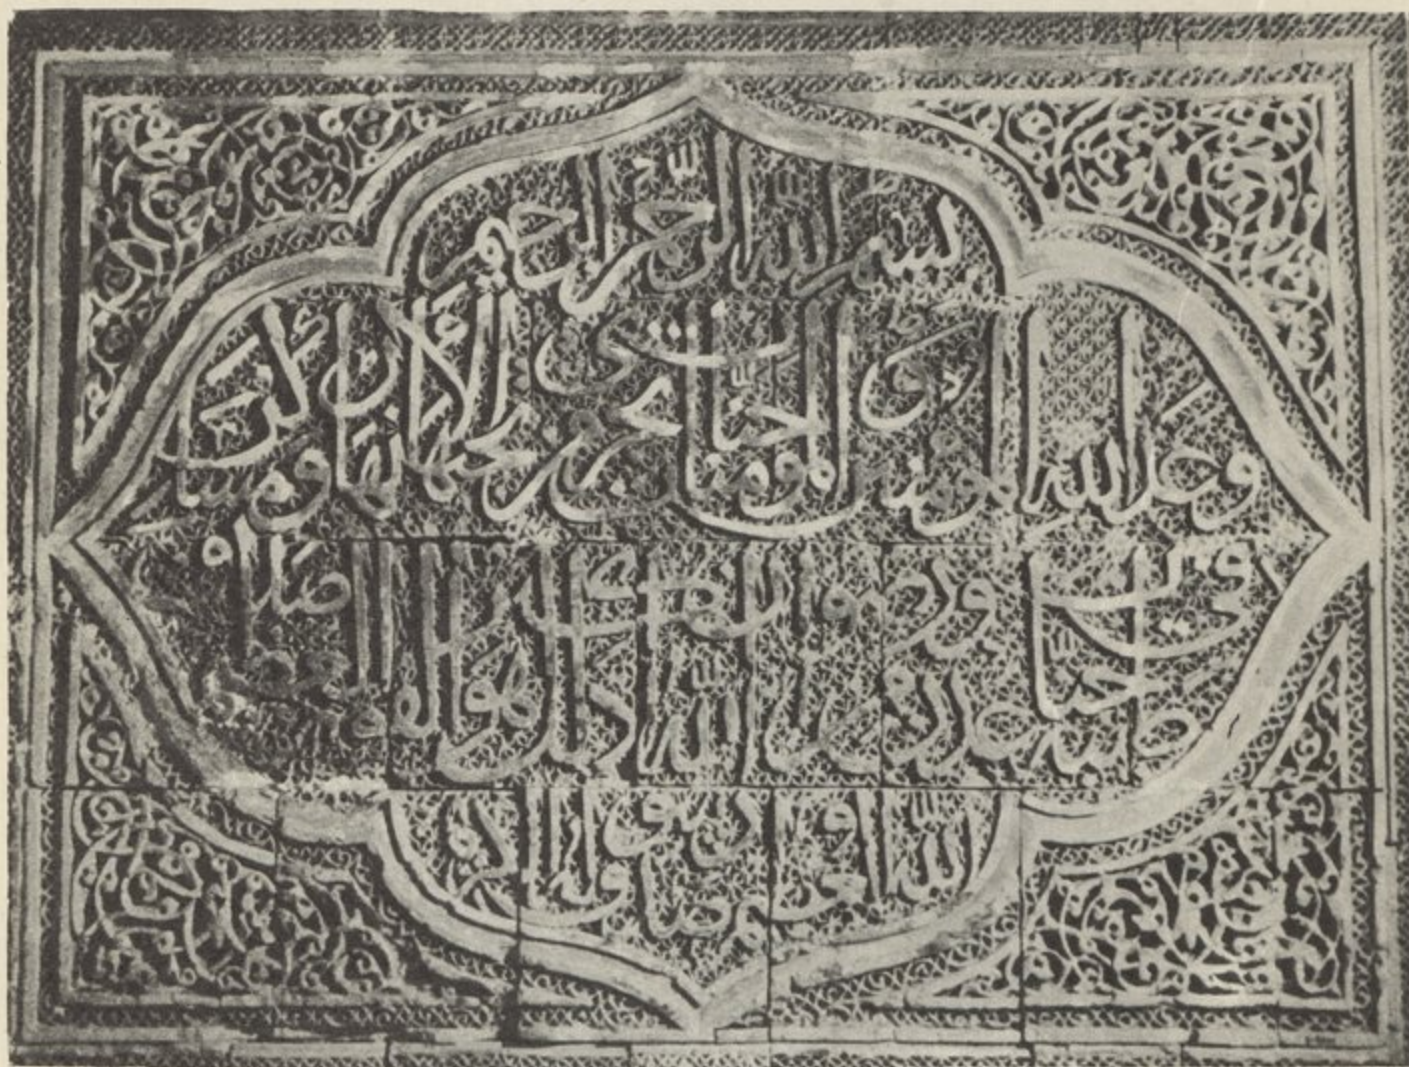 بسم الله الرحمن الرحيم
وعد الله المؤمنين والمؤمنات جنات تجري من تحتها الأنهار خالدين فيها ومساكن
طيبة في جنات عدن ورضوان من الله أكبر ذلك هو الفوز العظيم
الله العظيم وصدق رسوله